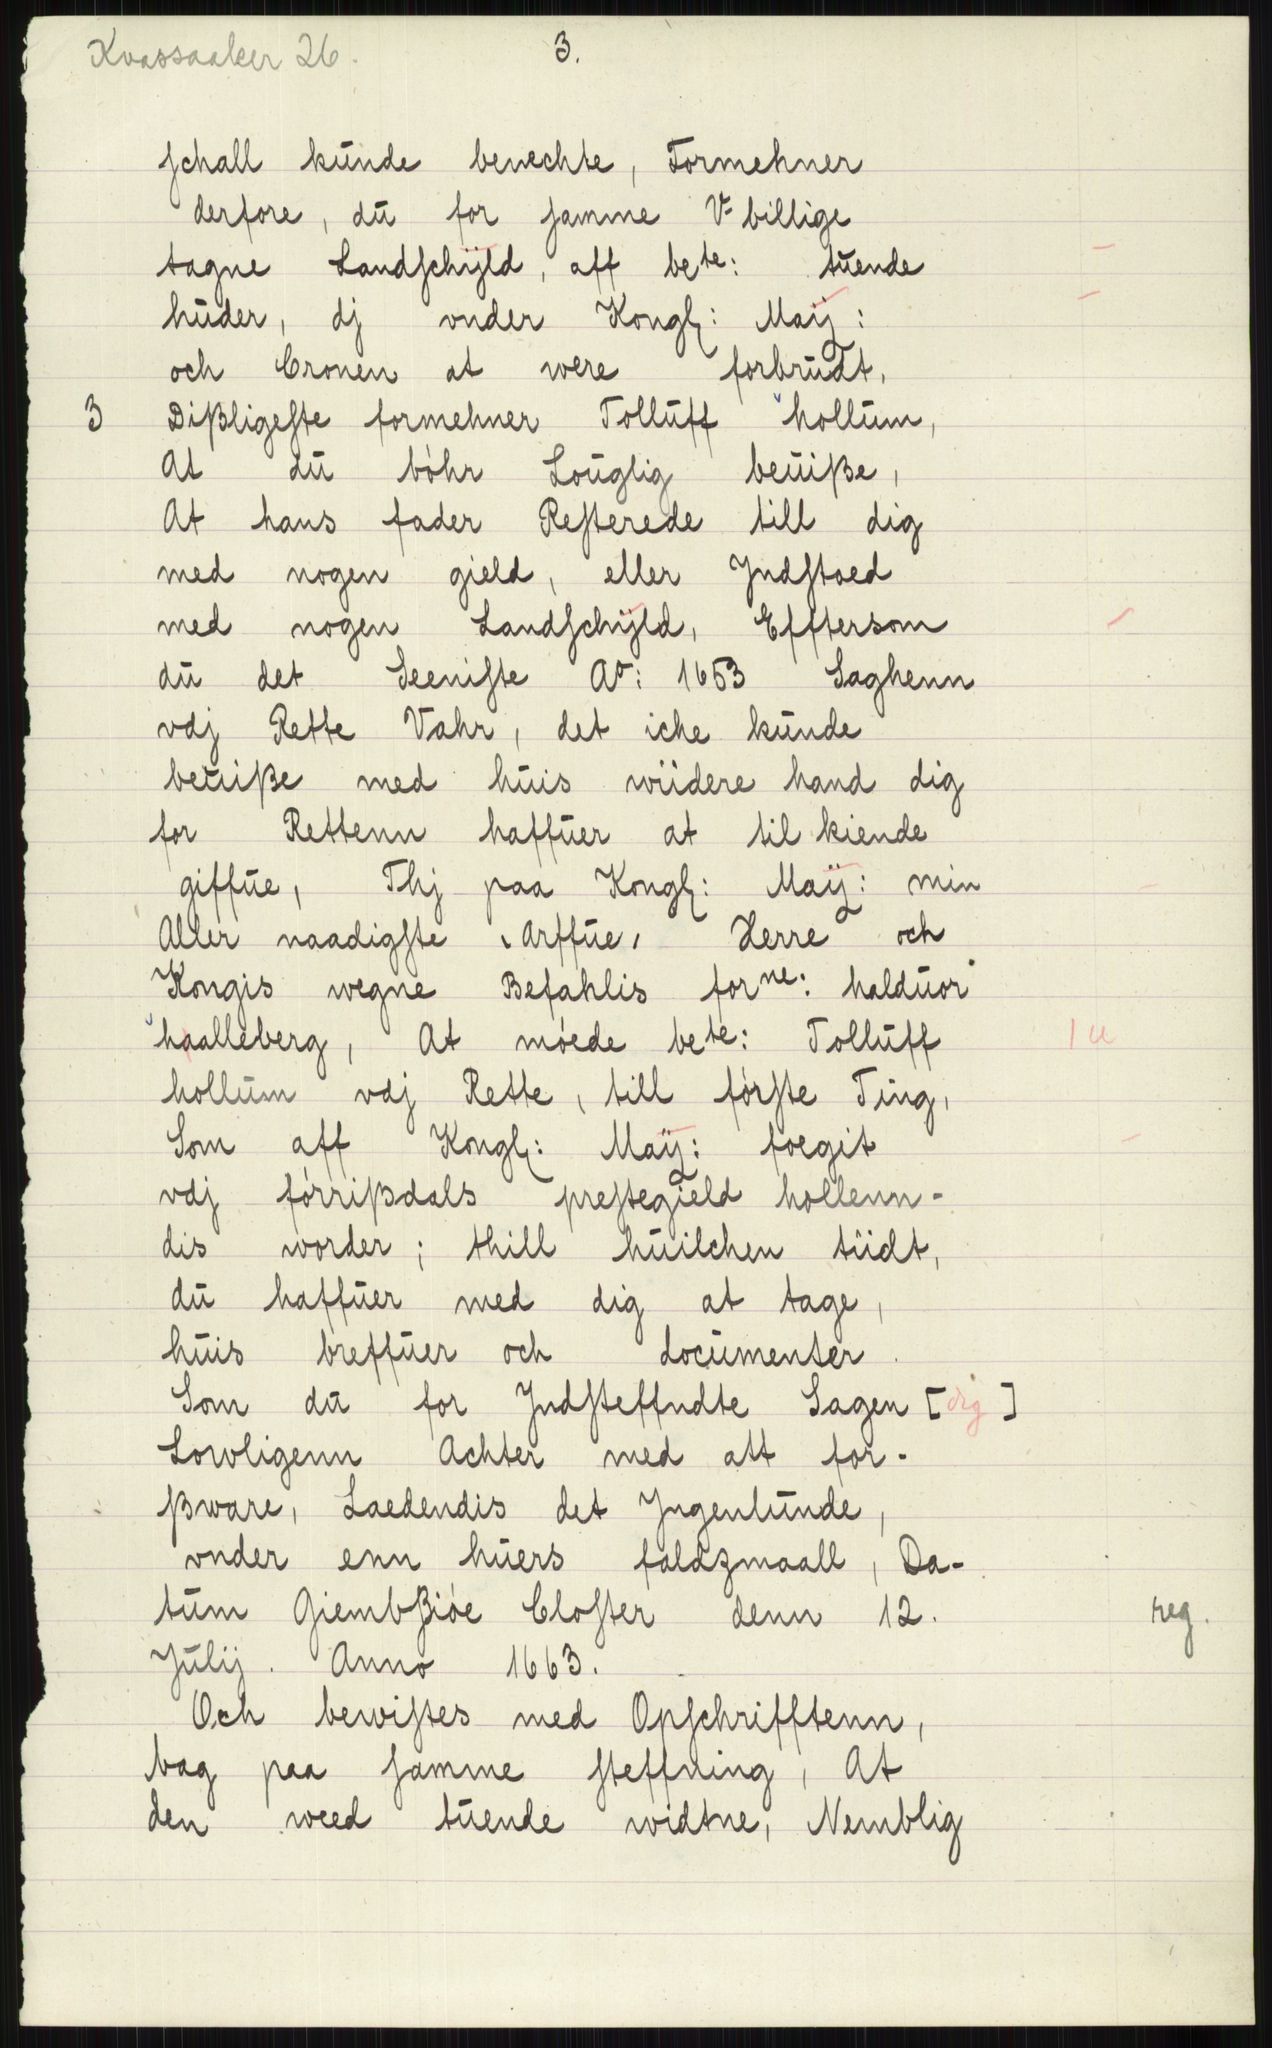 Kvassaaker 26.
3.
schall kunde benechte, Formehner
derfore, du for samme V-billige
tagne Landschÿld, aff bete: tuende
huder, dj vnder Kongl: Maÿ:
och Cronen at were forbrudt,
3 Dißligeste formehner Tolluff hollum,
At du bóhr Louglig beuiße,
At hans fader Resterede till dig
med nogen gield, eller Jndstoed
med nogen Landschÿld, Efftersom
du det Seeniste Ao: 1653 Saghenn
vdj Rette Vahr, det iche kunde
beuiße med huis wiidere hand dig
for Rettenn haffuer at tilkiende
giffue, Thj paa Kongl: Maÿ: min
Aller naadigste Arffue, Herre och
Kongis wegne Befahlis forne: halduor
haalleberg, At móede bete: Tolluff
hollum vdj Rette, till fórste Ting,
Som aff Kongl: Maÿ: foegit
vdj fórrißdals prestegield hollenn-
dis worder; thill huilchen tiidt,
du haffuer med dig at tage,
huis breffuer och documenter
Som du for Jndsteffndte Sagen [dig]
Lowligenn Achter med att for-
ßware, Laedendis det Jngenlunde,
vnder enn huers faldzmaall, Da-
tum Giembßióe Closter denn 12.
reg.
Julij. Anno 1663.
Och bewistes med Opschrifftenn,
bag paa samme steffning, At
den weed tuende widtne, Nemblig